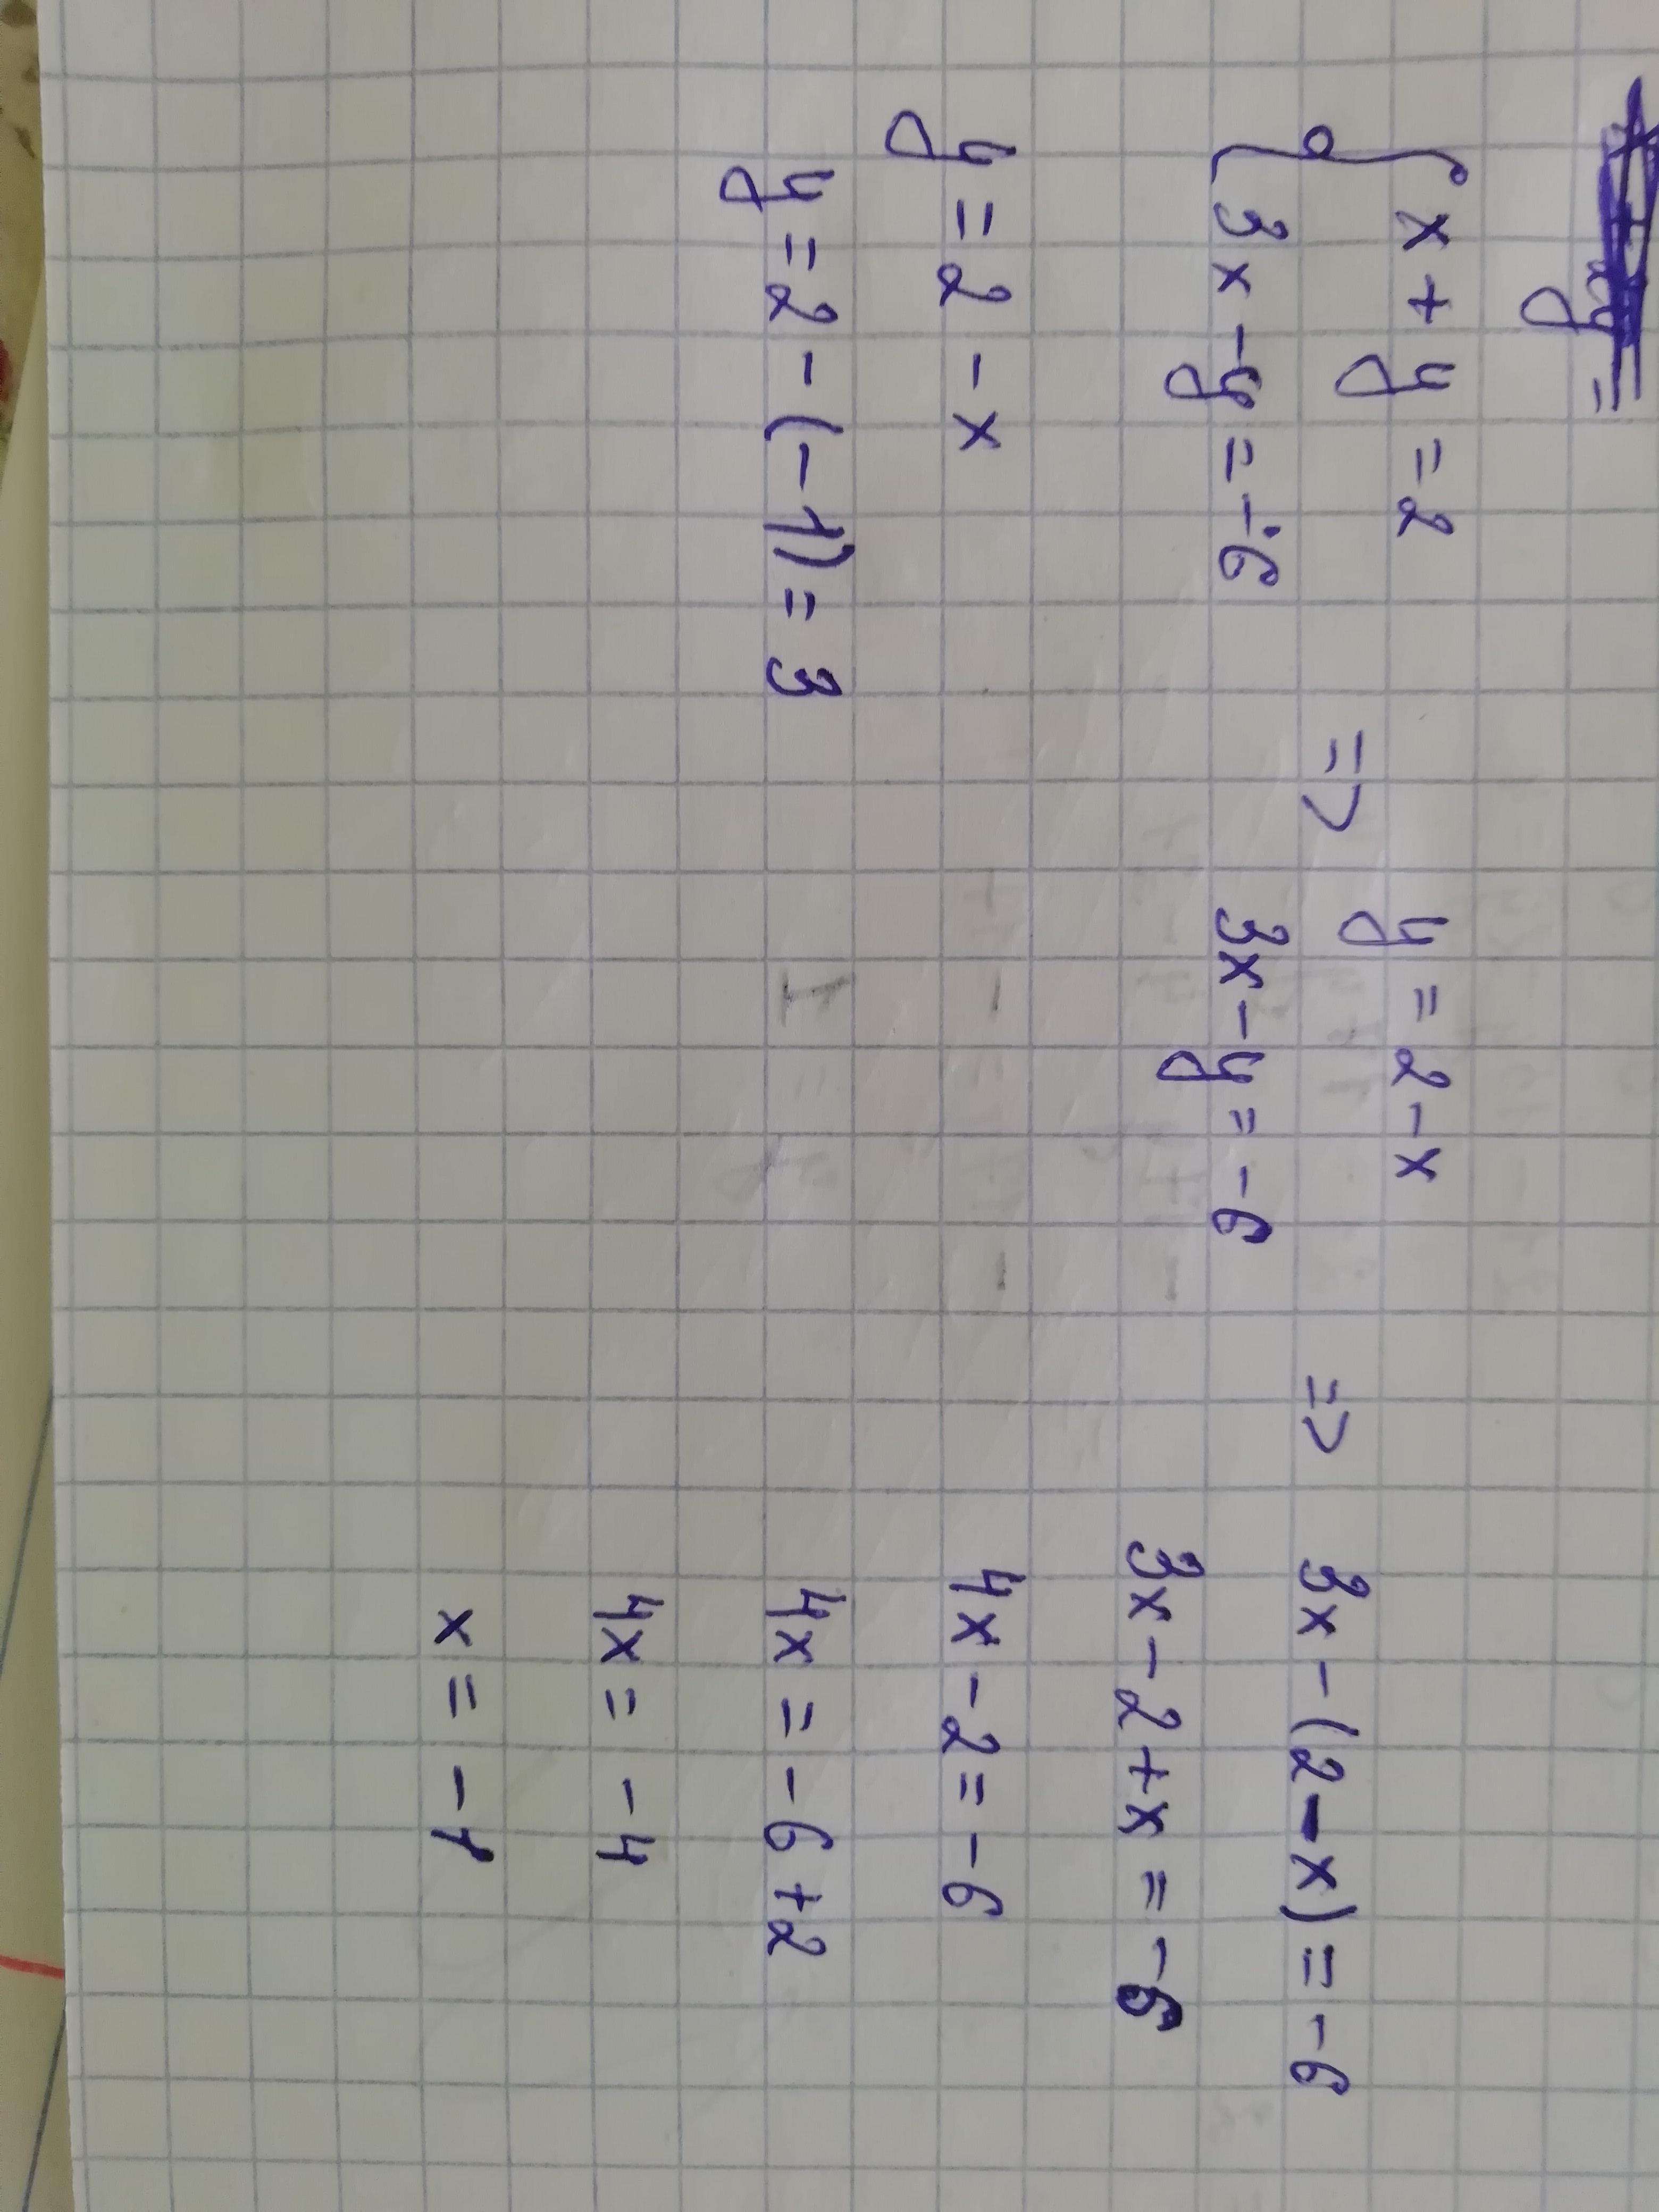 x + y = 2
3x - y = -6
=>
y = 2 - x
3x - y = -6
=>
3x - (2 - x) = -6
3x - 2 + x = -6
4x - 2 = -6
4x = -6 + 2
4x = -4
x = -1
y = 2 - x
y = 2 - (-1) = 3